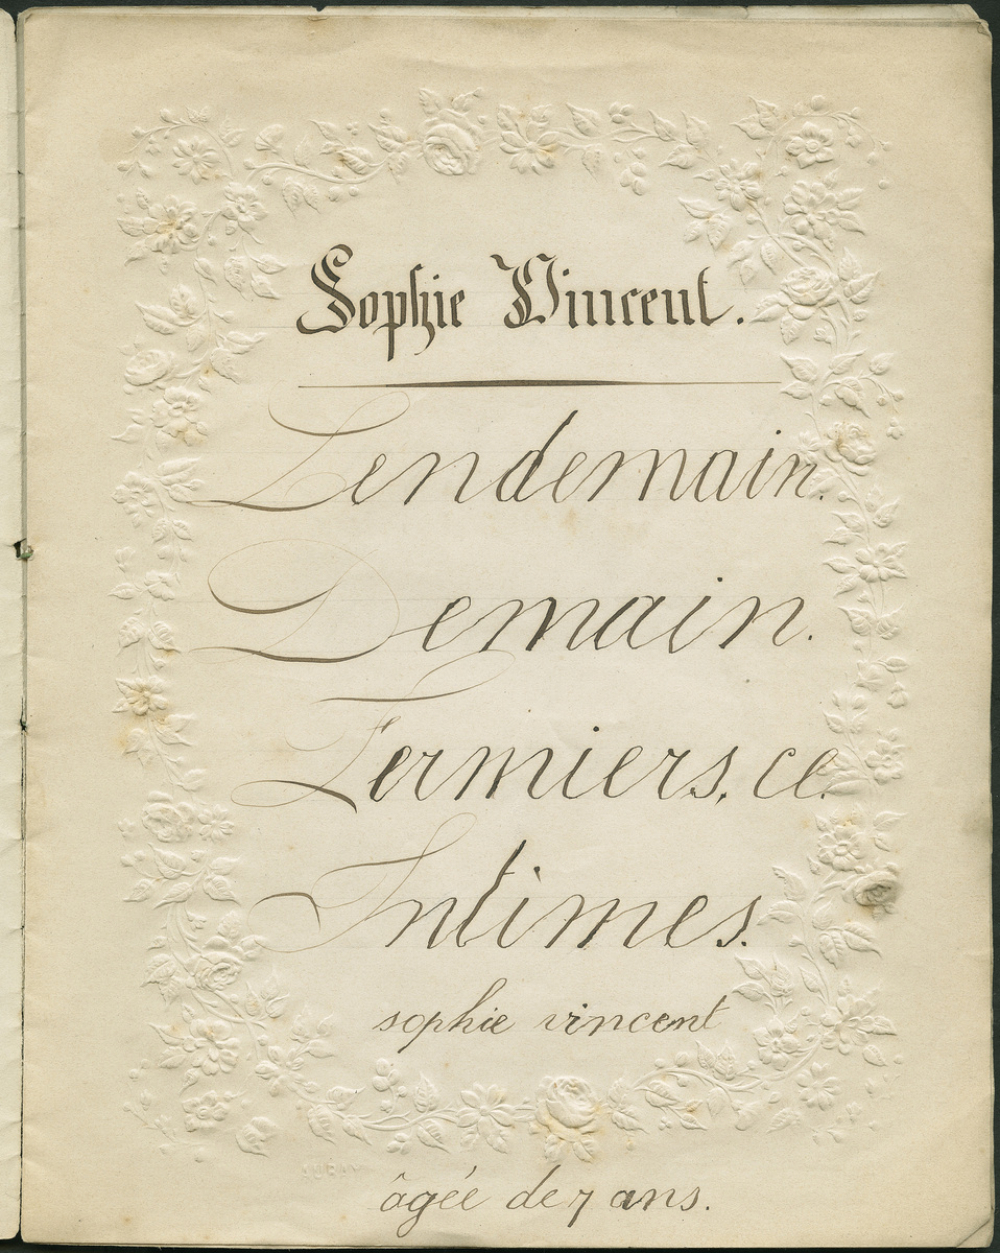 Sophie Vincent.
Lendemain.
Demain.
Fermiers, ce.
Intimes.
sophie vincent
âgée de 7 ans.